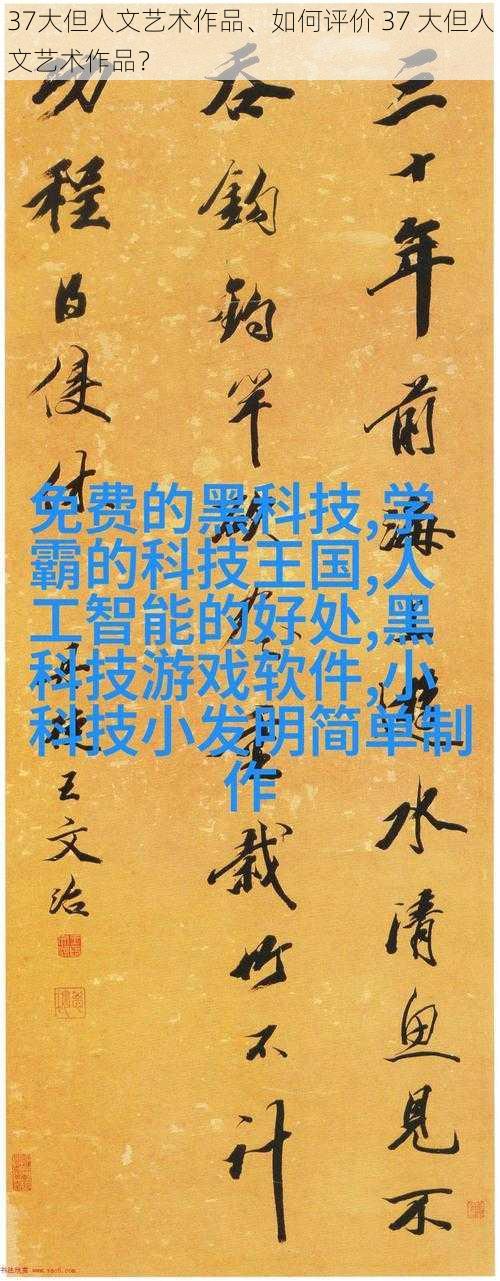 37大但人文艺术作品、如何评价 37 大但人
文艺术作品？
三十年前海遊水清魚見不
吞鉤釣竿重栽竹不計
功程
王文治
免费的黑科技,学
霸的科技王国,人
工智能的好处,黑
科技游戏软件,小
科技小发明简单制
作
书法欣赏 www.yac8.com